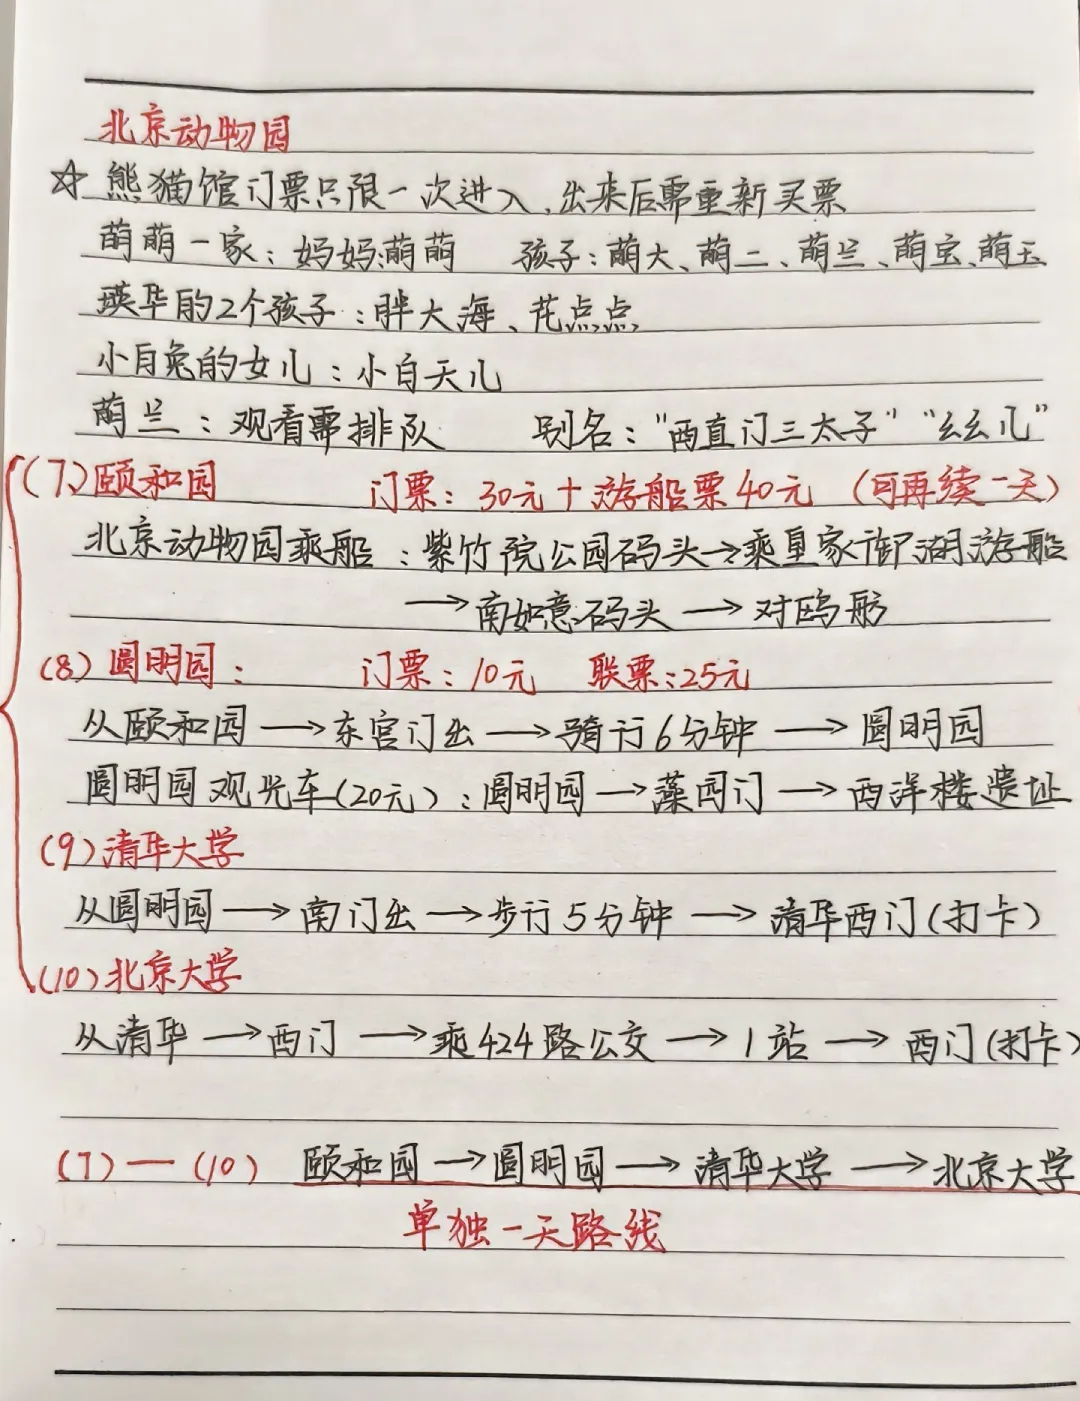 北京动物园
☆ 熊猫馆门票只限一次进入，出来后需重新买票
萌萌一家：妈妈:萌萌 孩子：萌大、萌二、萌兰、萌宝、萌玉
瑛华的2个孩子：胖大海、花点点
小白兔的女儿：小白天儿
萌兰：观看需排队 别名：“西直门三太子” “幺幺儿”
(7)颐和园 门票：30元＋游船票40元 (可再续一天)
北京动物园乘船：紫竹院公园码头→乘皇家御湖游船
→南如意码头→对鸥舫
(8)圆明园： 门票：10元 联票：25元
从颐和园→东宫门出→骑行6分钟→圆明园
圆明园观光车(20元)：圆明园→藻园门→西洋楼遗址
(9)清华大学
从圆明园→南门出→步行5分钟→清华西门(打卡)
(10)北京大学
从清华→西门→乘424路公交→1站→西门(打卡)
(7)—(10) 颐和园→圆明园→清华大学→北京大学
单独一天路线